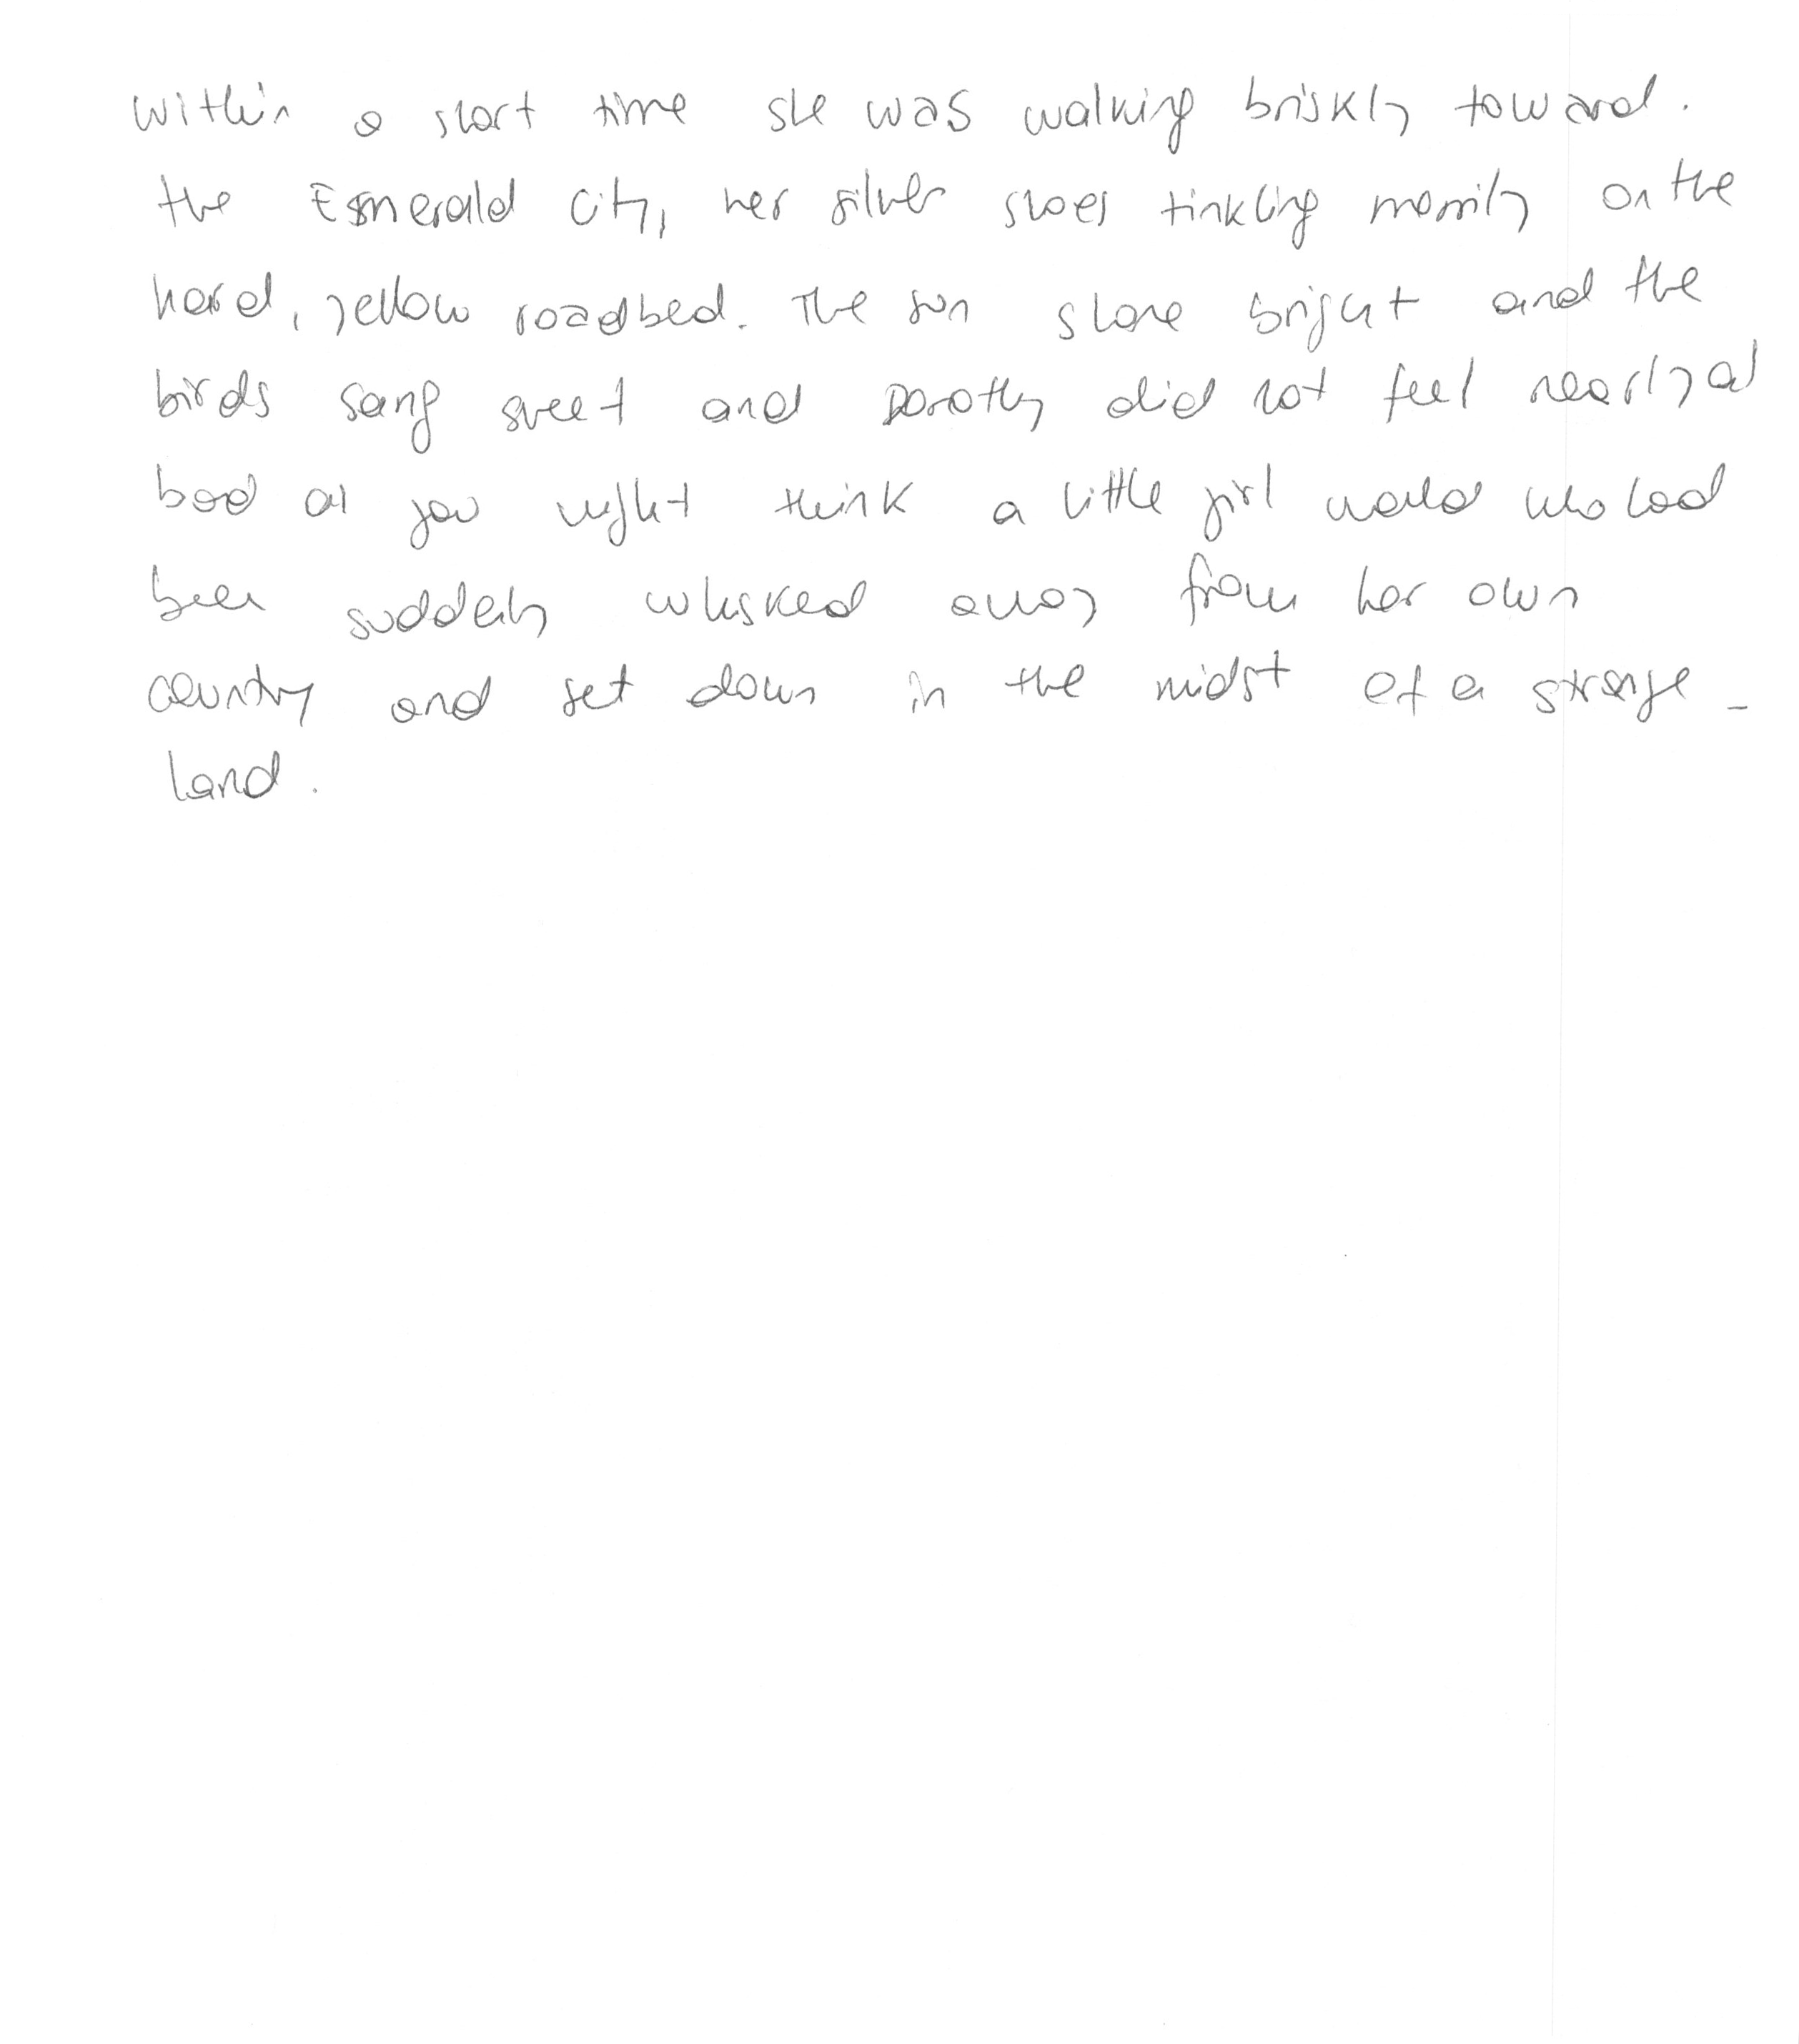 Within a short time she was walking briskly toward.
the Esmerald City, her silver shoes tinkling merrily on the
hard, yellow roadbed. The sun shone bright and the
birds sang sweet and Dorothy did not feel nearly as
bad as you might think a little girl would who had
been suddenly whisked away from her own
country and set down in the midst of a strange -
land.